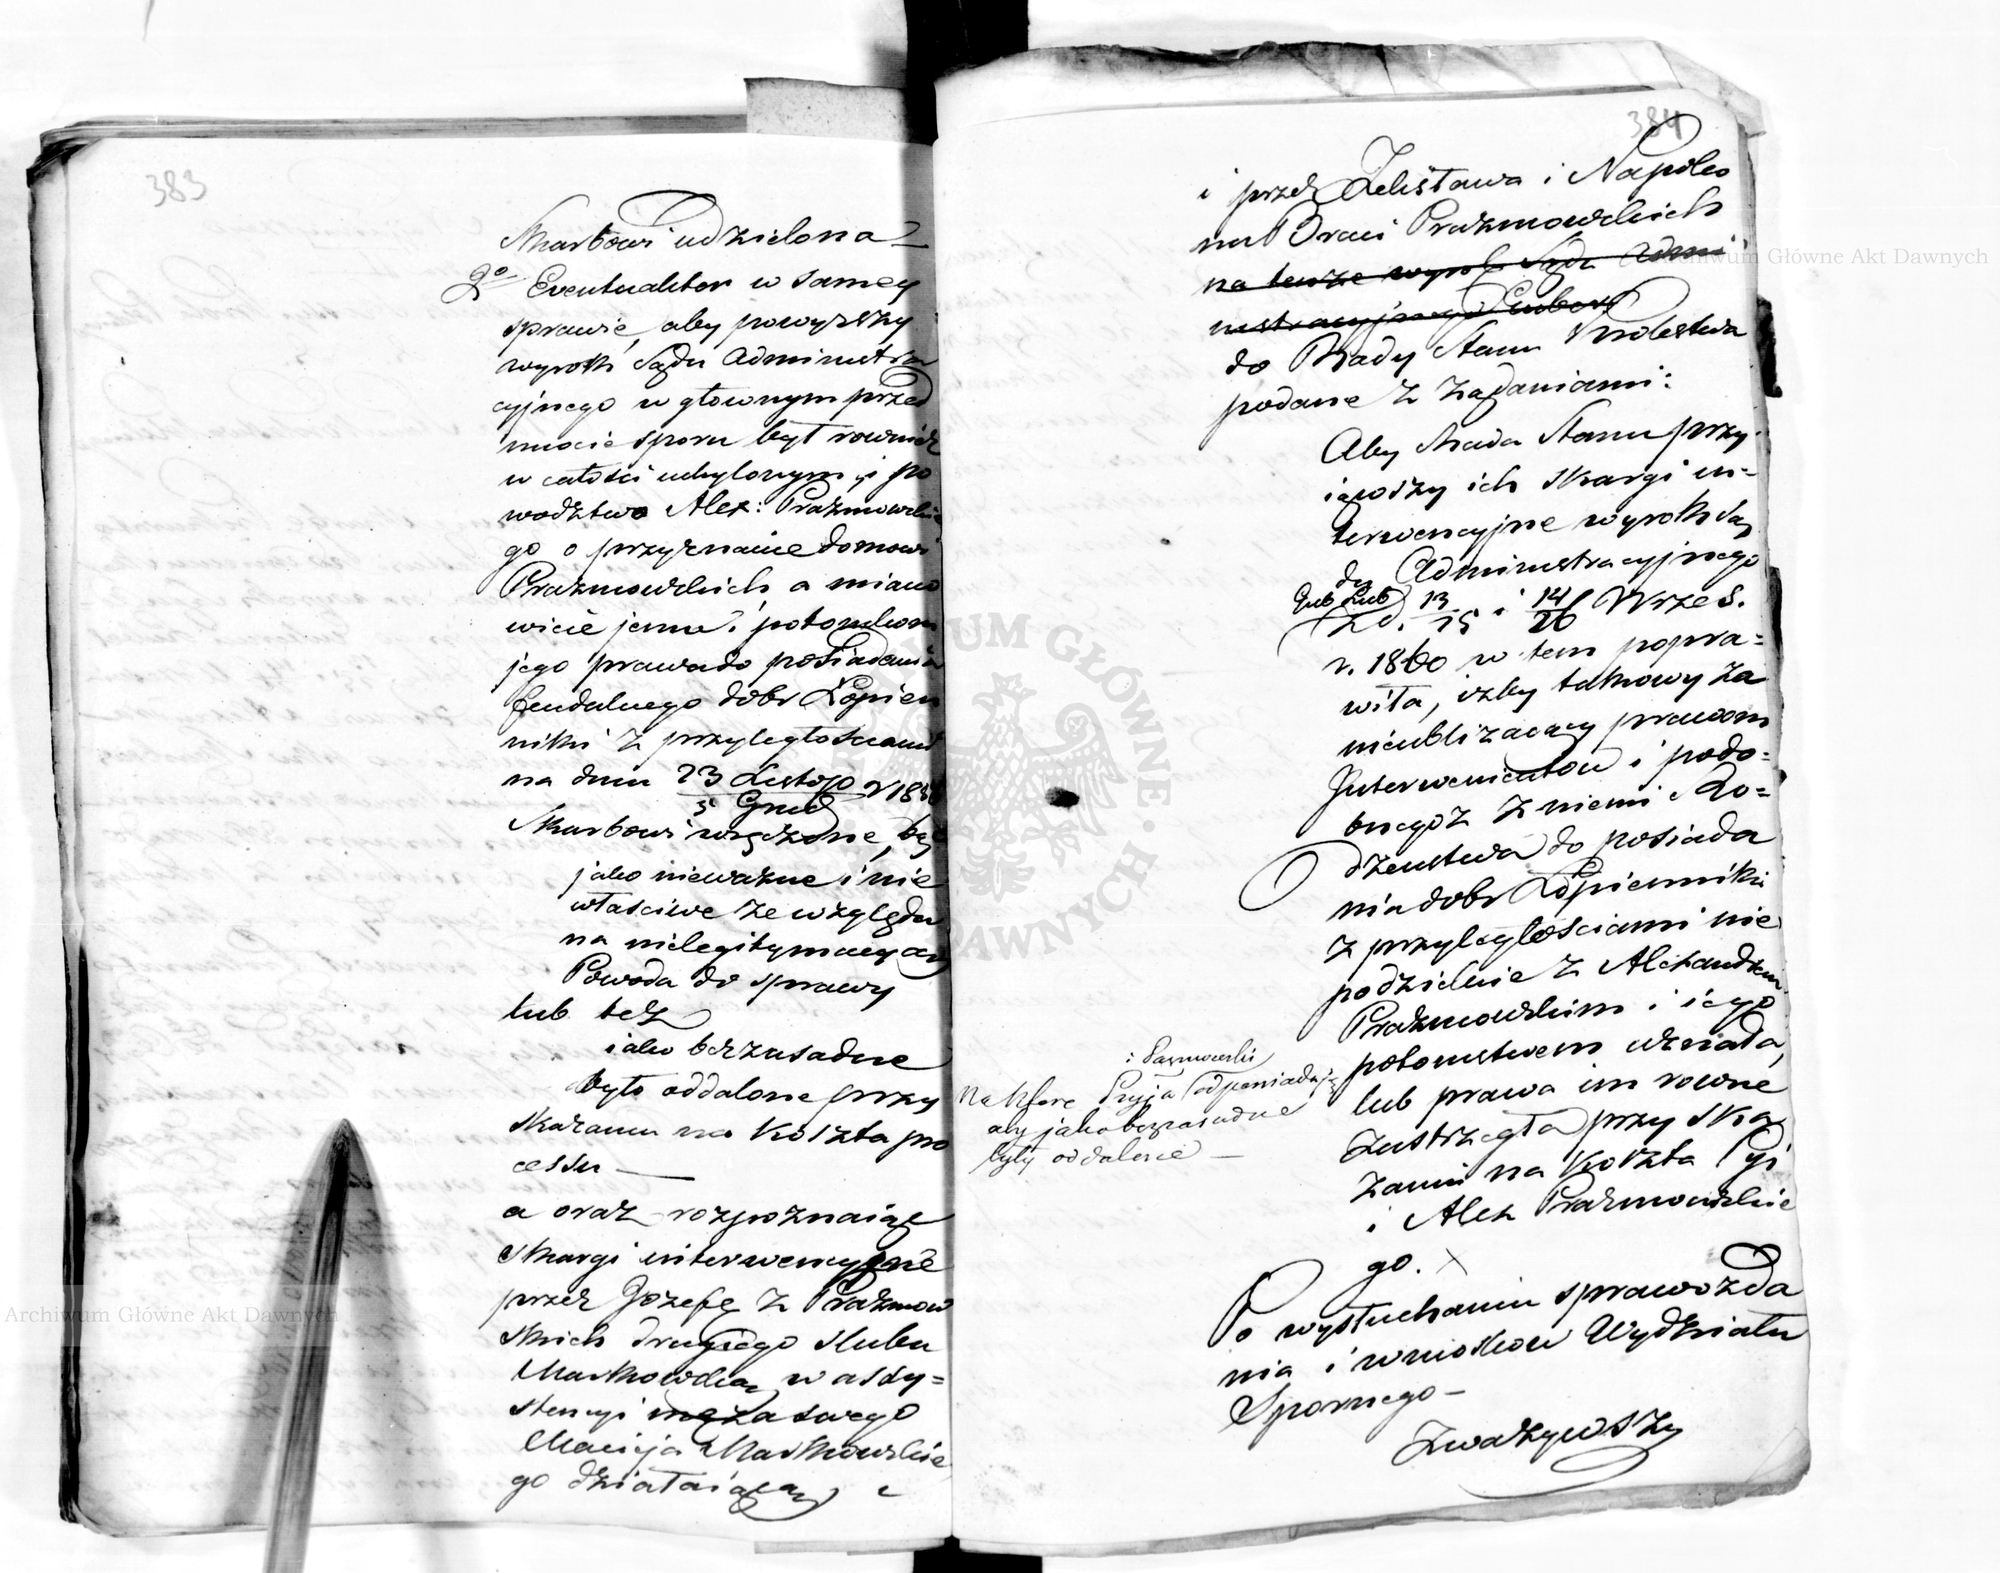 383
Skarbowi udzielona —
2° Eventualiter w samey
sprawie, aby powyższy
wyrok Sądu Administra
cyjnego w głownym przed
miocie sporu był rownież
w całości uchylonym, i po
wodztwo Alex: Prazmowskie
go o przyznanie domowi
Prazmowskich a miano
wicie jemu i potomkom
jego prawa do posiadania
feudalnego dobr Łopien
niki z przyległosciami
na dniu 23 Listop / 5 Grud r 185
Skarbowi wręczone, by
jako nieważne i nie
właściwe ze względu
na nielegitymacyą
Powoda do sprawy
lub też
iako bezzasadne
było oddalone przy
skazaniu na koszta pro
cessu —
a oraz rozpoznaiąc
skargi interwencyjne
przez Jozefę z Prazmow
skich drugiego slubu
Markowską w assy=
stencyi męża swego
Macieja Markowskie
go działaiącą
384
i przez Zdisława i Napoleo
na Braci Prazmowskich
na tenże wyrok Sądu Admi
nistracyjnego Gubers
do Rady Stanu Krolestwa
podane z żądaniami:
Aby Rada Stanu przy
iąwszy ich skargi in=
terwencyjne wyrok Są
du Administracyjnego
Gub Lub z d. 13/25 i 14/26 Wrześ.
r. 1860 w tem popra=
wiła, iżby takowy za
nieublizaiący prawom
Interwenientow i podo=
bnegoż z niemi Ro=
dzeństwa do posiada
nia dobr Łopienniki
z przyległościami nie
podzielnie z Alexandrem
Prazmowskim i iego
potomstwem uznała,
lub prawa im rowne
zastrzegła przy ska
zaniu na koszta
i Alex Prazmowskie
go. ×
i Prazmowski
Na które odpowiadają
aby jako bezzasadne
były oddalone —
Po wysłuchaniu sprawozda
nia i wniosków Wydziału
Spornego —
Zważywszy
Archiwum Główne Akt Dawnych
Archiwum Główne Akt Dawnych
ARCHIWUM GŁÓWNE AKT DAWNYCH